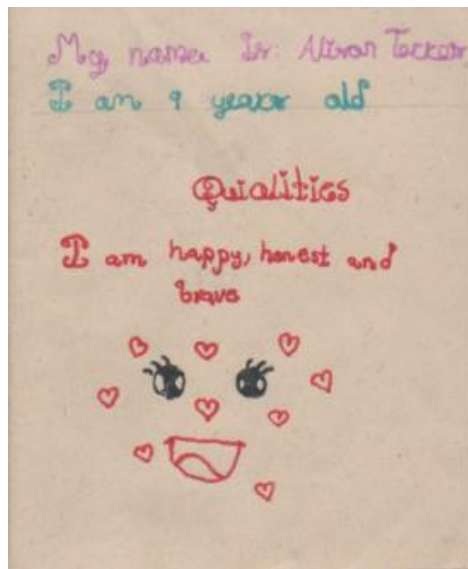 My name Is: Alison Tecker
I am 9 years old
Qualities
I am happy, honest and
brave